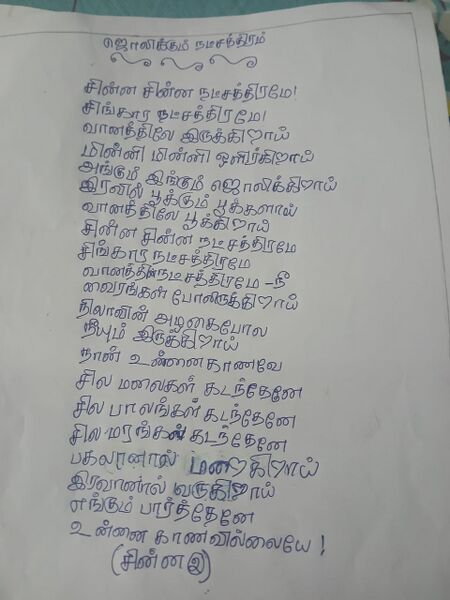 ஜொலிக்கும் நட்சத்திரம்
சின்ன சின்ன நட்சத்திரமே!
சிங்கார நட்சத்திரமே!
வானத்திலே இருக்கிறாய்
மின்னி மின்னி ஒளிர்கிறாய்
அங்கும் இங்கும் ஜொலிக்கிறாய்
இரவில் பூக்கும் பூக்களாய்
வானத்திலே பூக்கிறாய்
சின்ன சின்ன நட்சத்திரமே
சிங்கார நட்சத்திரமே
வானத்தின் நட்சத்திரமே - நீ
வைரங்கள் போலிருக்கிறாய்
நிலாவின் அழகைபோல
நீயும் இருக்கிறாய்
நான் உன்னைகாணவே
சில மலைகள் கடந்தேனே
சில பாலங்கள் கடந்தேனே
சில மரங்கள் கடந்தேனே
பகலானால் மறைகிறாய்
இரவானால் வருகிறாய்
எங்கும் பார்த்தேனே
உன்னை காணவில்லையே !
(சின்ன இ)